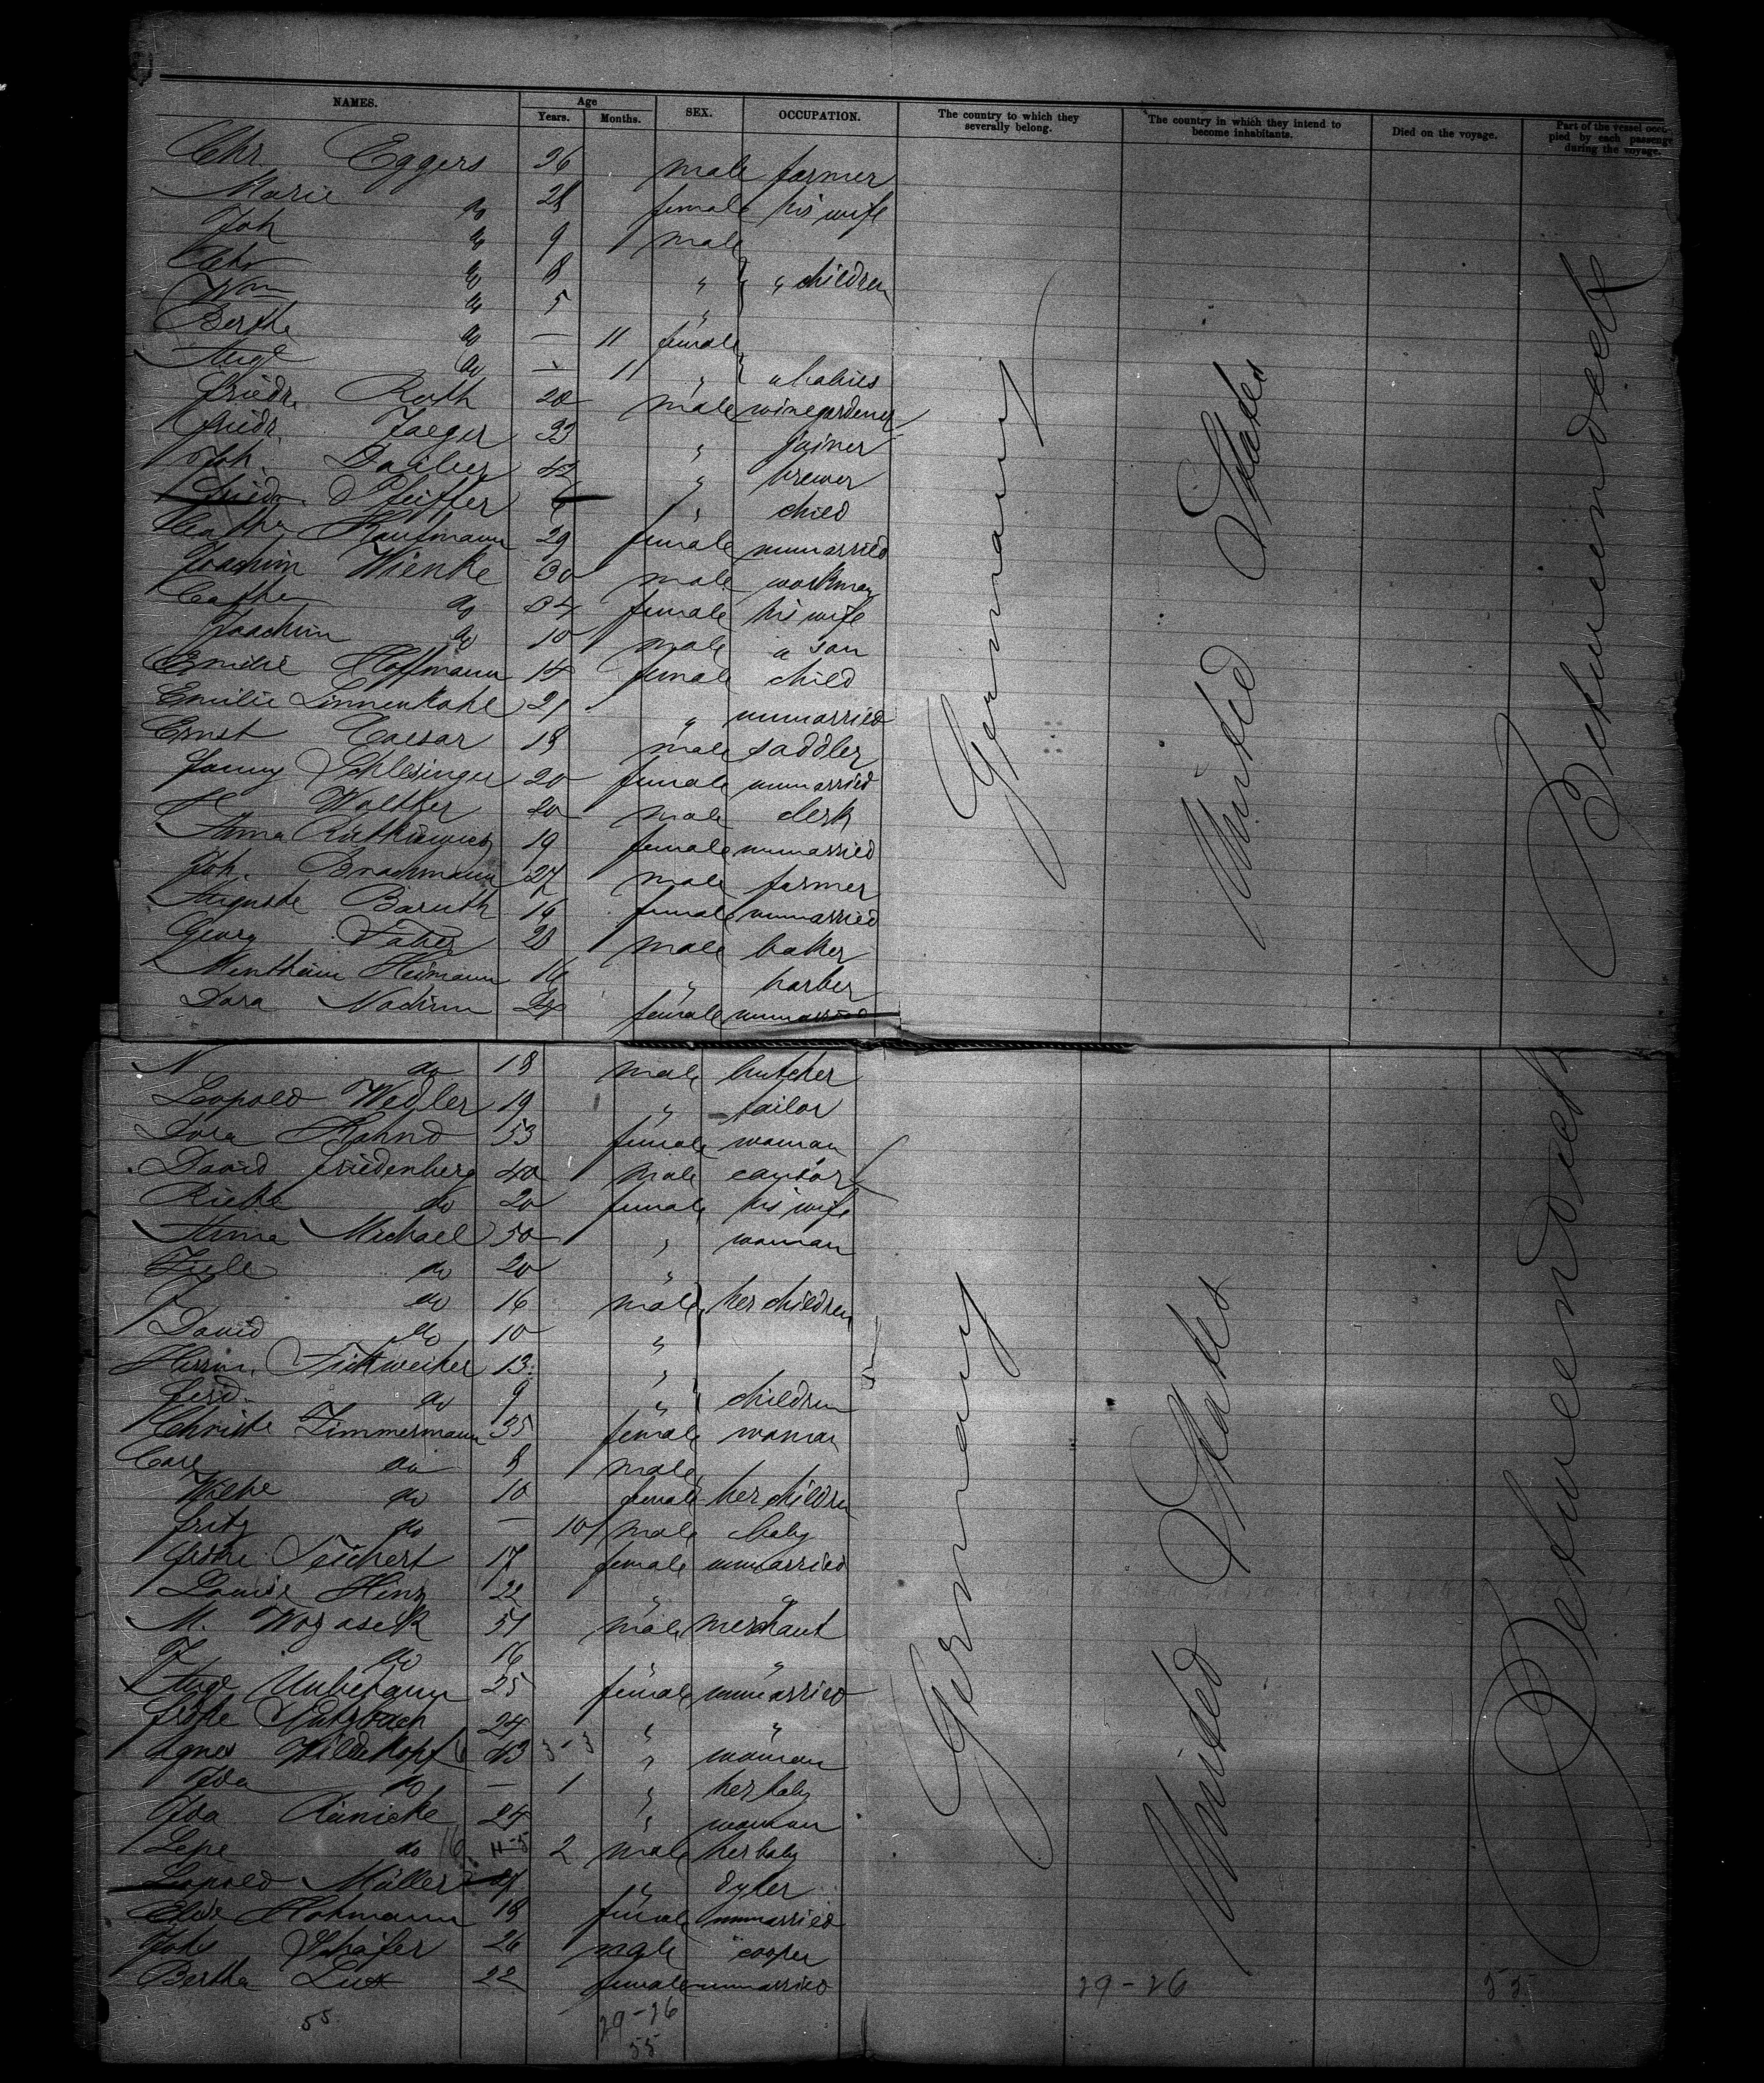 NAMES. Age SEX. OCCUPATION. The country to which they severally belong. The country in which they intend to become inhabitants. Died on the voyage. Part of the vessel occupied by each passenger during the voyage.
Years. Months.
Chr Eggers 36 male farmer
Marie do 28 female his wife
Joh do 9 male
do 8 " " children
Wm do 5 "
Berthe do — 11 female
Aug do — 11 " " babies
Friedr. Roth 20 male winegardener
Friedr. Jaeger 33 " joiner
Joh. Dauber 42 " brewer
Friedr. Pfeiffer 6 " child
Cathe Kaufmann 29 female unmarried
Joachim Wienke 30 male workman
Cathe do 34 female his wife
Joachim do 10 male " son
Emilie Hoffmann 14 female child
Emilie Linnenkohl 21 " unmarried
Ernst Caesar 18 male saddler
Fanny Schlesinger 20 female unmarried
H Walther 20 male clerk
Anna 19 female unmarried
Joh. Brachmann 27 male farmer
Auguste Baruth 16 female unmarried
Georg Faber 28 male baker
Heimann 16 " barber
Dora 24 female unmarried
Germany
United States
Between deck
N do 18 male butcher
Leopold Wedler 19 " tailor
Dora 53 female woman
David Friedenberg 40 male cantor
Rieke do 20 female his wife
Anna Michael 50 " woman
do 20 "
J do 16 male her children
David do 10 "
Herm. 13 "
Ferd. do 9 " children
Christe Zimmermann 35 female woman
Carl do 8 male
Wilhe do 10 female her children
Fritz do — 10 male baby
Teichert 17 female unmarried
Louise Hinz 22 " "
M. Wozaseck 51 male merchant
J do 16 "
Aug 25 female unmarried
24 " "
Agnes Wildekopf 43 3-3 " woman
Ida do — 1 " her baby
Ida Reinicke 24 " woman
do 2 male her baby
Leopold Müller " dyler
Elise Hohmann 18 female unmarried
Johs Schäfer 26 male cooper
Bertha Lux 22 female unmarried
Germany
United States
Between deck
29-26
55
55
29-26
55